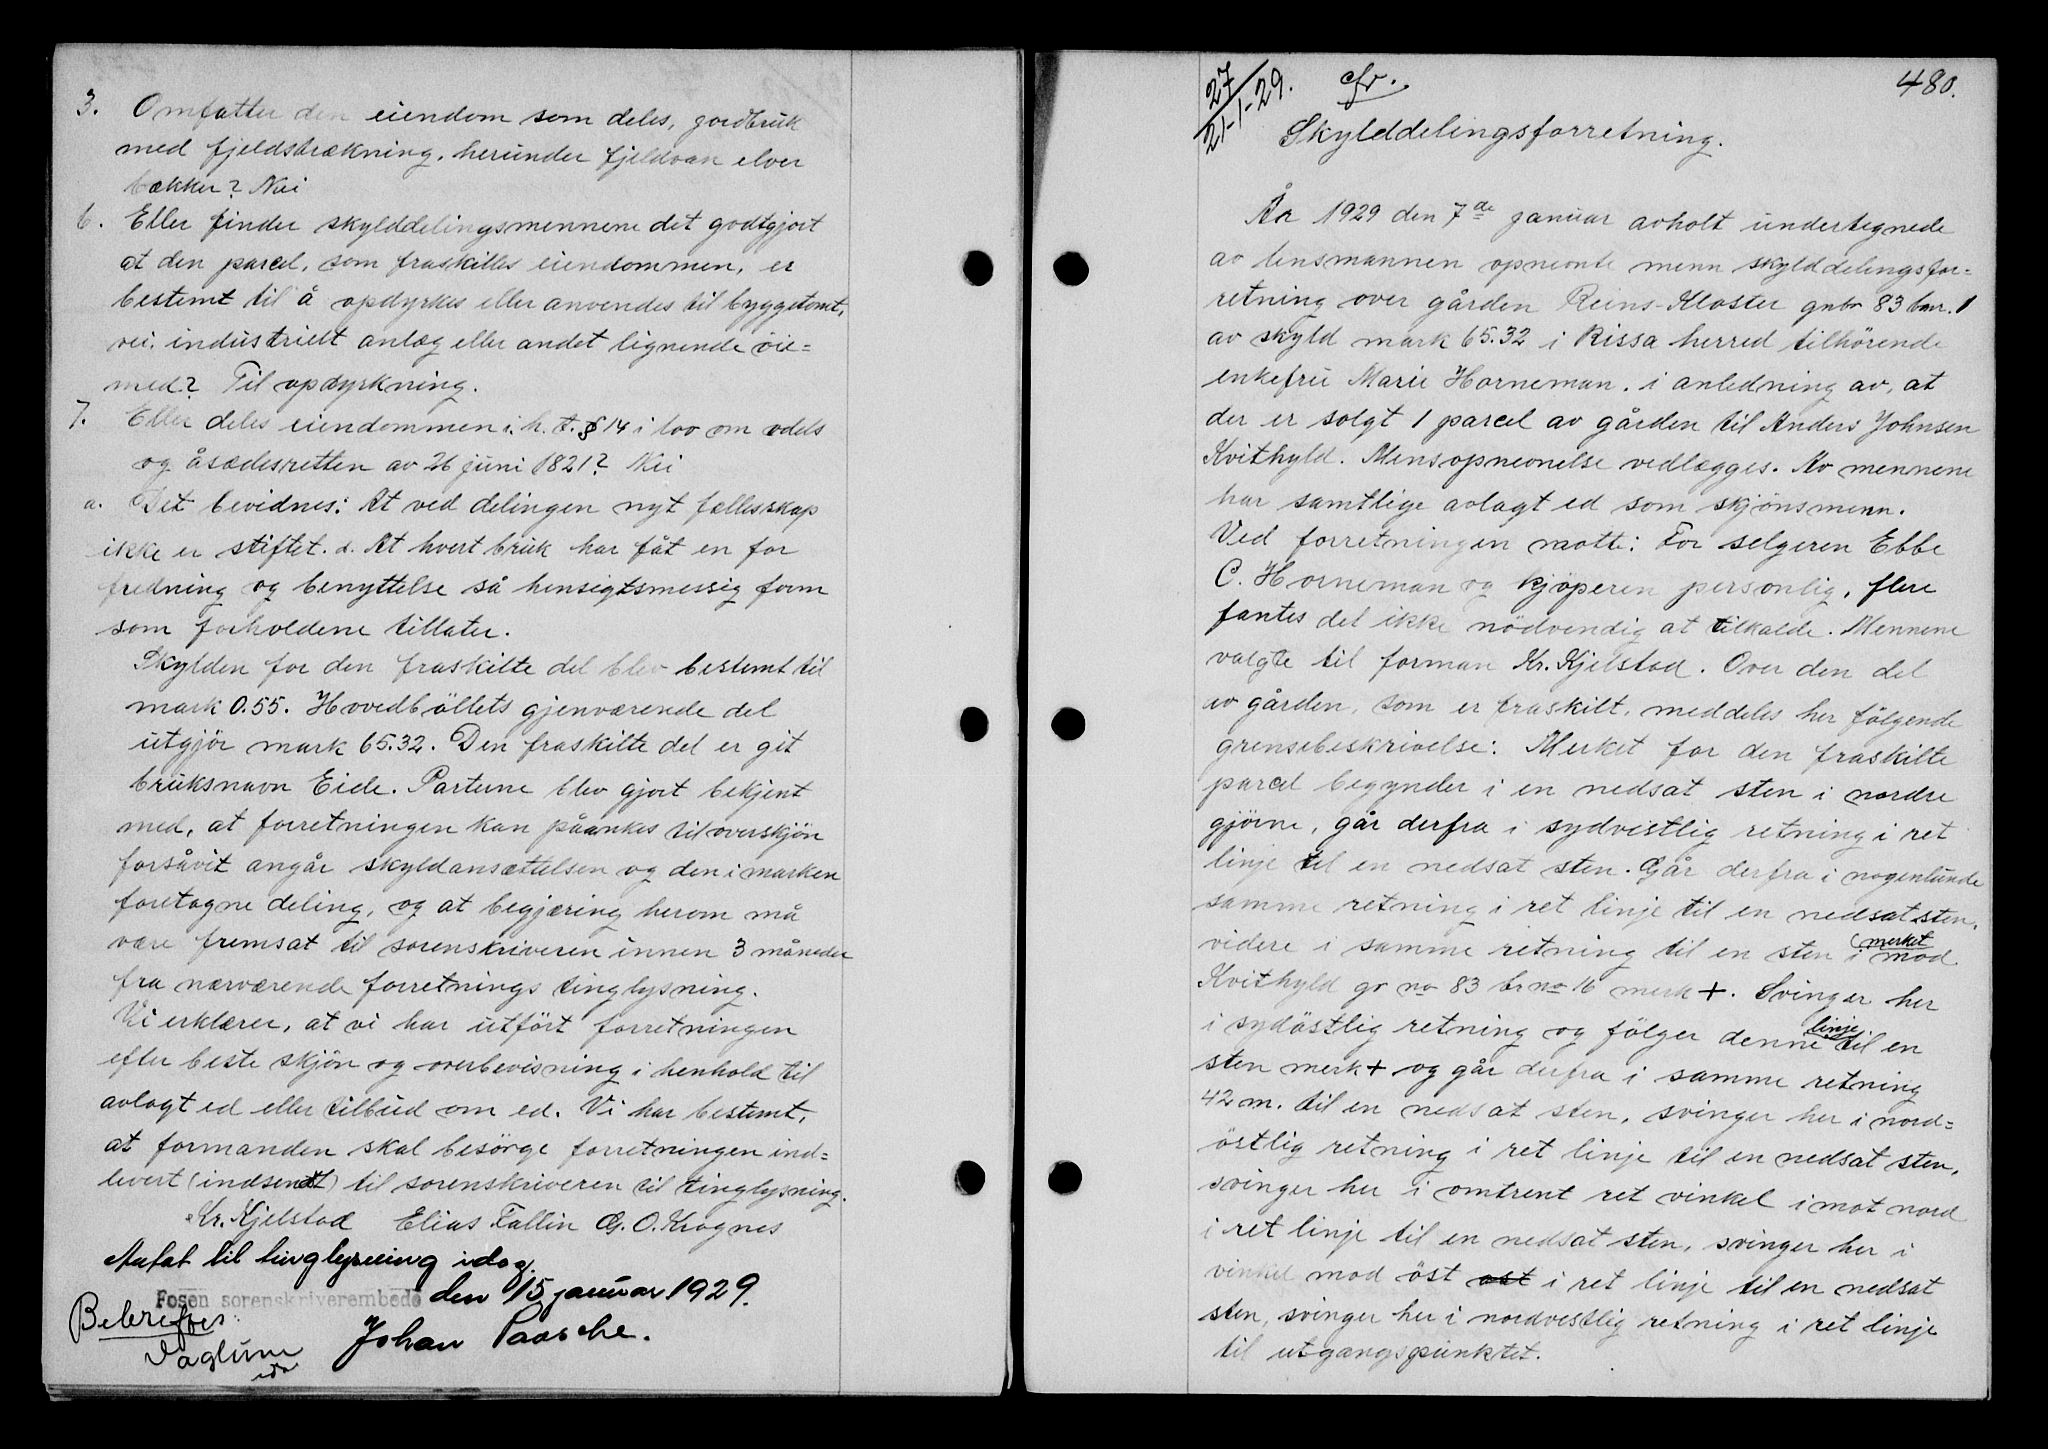 3. Omfatter den eiendom som deles, jordbruk
med fjeldstrækning, herunder fjeldvan elver
bækker? Nei
6. Eller finder skylddelingsmennene det godtgjort
at den parcel, som fraskilles eiendommen, er
bestemt til å opdyrkes eller anvendes til byggetomt,
vei, industrielt anlæg eller andet lignende øie=
med? Til opdyrkning.
7. Eller deles eiendommen i. h. t. § 14 i lov om odels
og åsædesretten av 26 juni 1821? Nei
a. Det bevidnes: At ved delingen nyt fællesskap
ikke er stiftet. d. At hvert bruk har fåt en for
fredning og benyttelse så hensigtsmessig form
som forholdene tillater.
Skylden for den fraskilte del blev bestemt til
mark 0.55. Hovedbøllets gjenværende del
utgjör mark 65.32. Den fraskilte del er git
bruksnavn Eide. Partene blev gjort bekjent
med, at forretningen kan påankes til overskjön
forsåvit angår skyldansættelsen og den i marken
foretagne deling, og at begjæring herom må
være fremsat til sorenskriveren innen 3 måneder
fra nærværende forretnings tinglysning.
Vi erklærer, at vi har utfört forretningen
efter beste skjön og overbevisning i henhold til
avlagt ed eller tilbud om ed. Vi har bestemt,
at formanden skal besörge forretningen ind=
levert (indsendt) til sorenskriveren til tinglysning.
Kr. Kjelstad Elias Fallin G. O. Kragnes
Mottat til tinglysning idag.
Fosen sorenskriverembede den 15 januar 1929.
Johan Paasche.
Bekreftes:
Vaglum
27/21-1-29. cfr. 480.
Skylddelingsforretning.
År 1929 den 7de januar avholt undertegnede
av lensmannen opnevnte menn skylddelingsfor=
retning over gården Reins-Kloster gnbr 83 bnr. 1
av skyld mark 65.32 i Rissa herred tilhörende
enkefru Marie Horneman. i anledning av, at
der er solgt 1 parcel av gården til Anders Johnsen
Kvithyld. Mensopnevnelse vedlægges. Av mennene
har samtlige avlagt ed som skjönsmenn.
Ved forretningen møtte: For selgeren Ebbe
C. Horneman og kjöperen personlig, flere
fantes det ikke nödvendig at tilkalde. Mennene
valgte til forman Kr. Kjelstad. Over den del
av gården, som er fraskilt, meddeles her fölgende
grensebeskrivelse: Merket for den fraskilte
parcel begynder i en nedsat sten i nordre
gjörne, går derfra i sydvestlig retning i ret
linje til en nedsat sten. Går derfra i nogenlunde
samme retning i ret linje til en nedsat sten,
videre i samme retning til en sten i (merket mod
Kvithyld gr no 83 br no 16 merk +. Svinger her
i sydöstlig retning og fölger denne linje til en
sten merk + og går derfra i samme retning
42 m. til en nedsat sten, svinger her i nord=
östlig retning i ret linje til en nedsat sten,
svinger her i omtrent ret vinkel imot nord
i ret linje til en nedsat sten, svinger her i
vinkel mod öst ost i ret linje til en nedsat
sten, svinger her i nordvestlig retning i ret linje
til utgangspunktet.